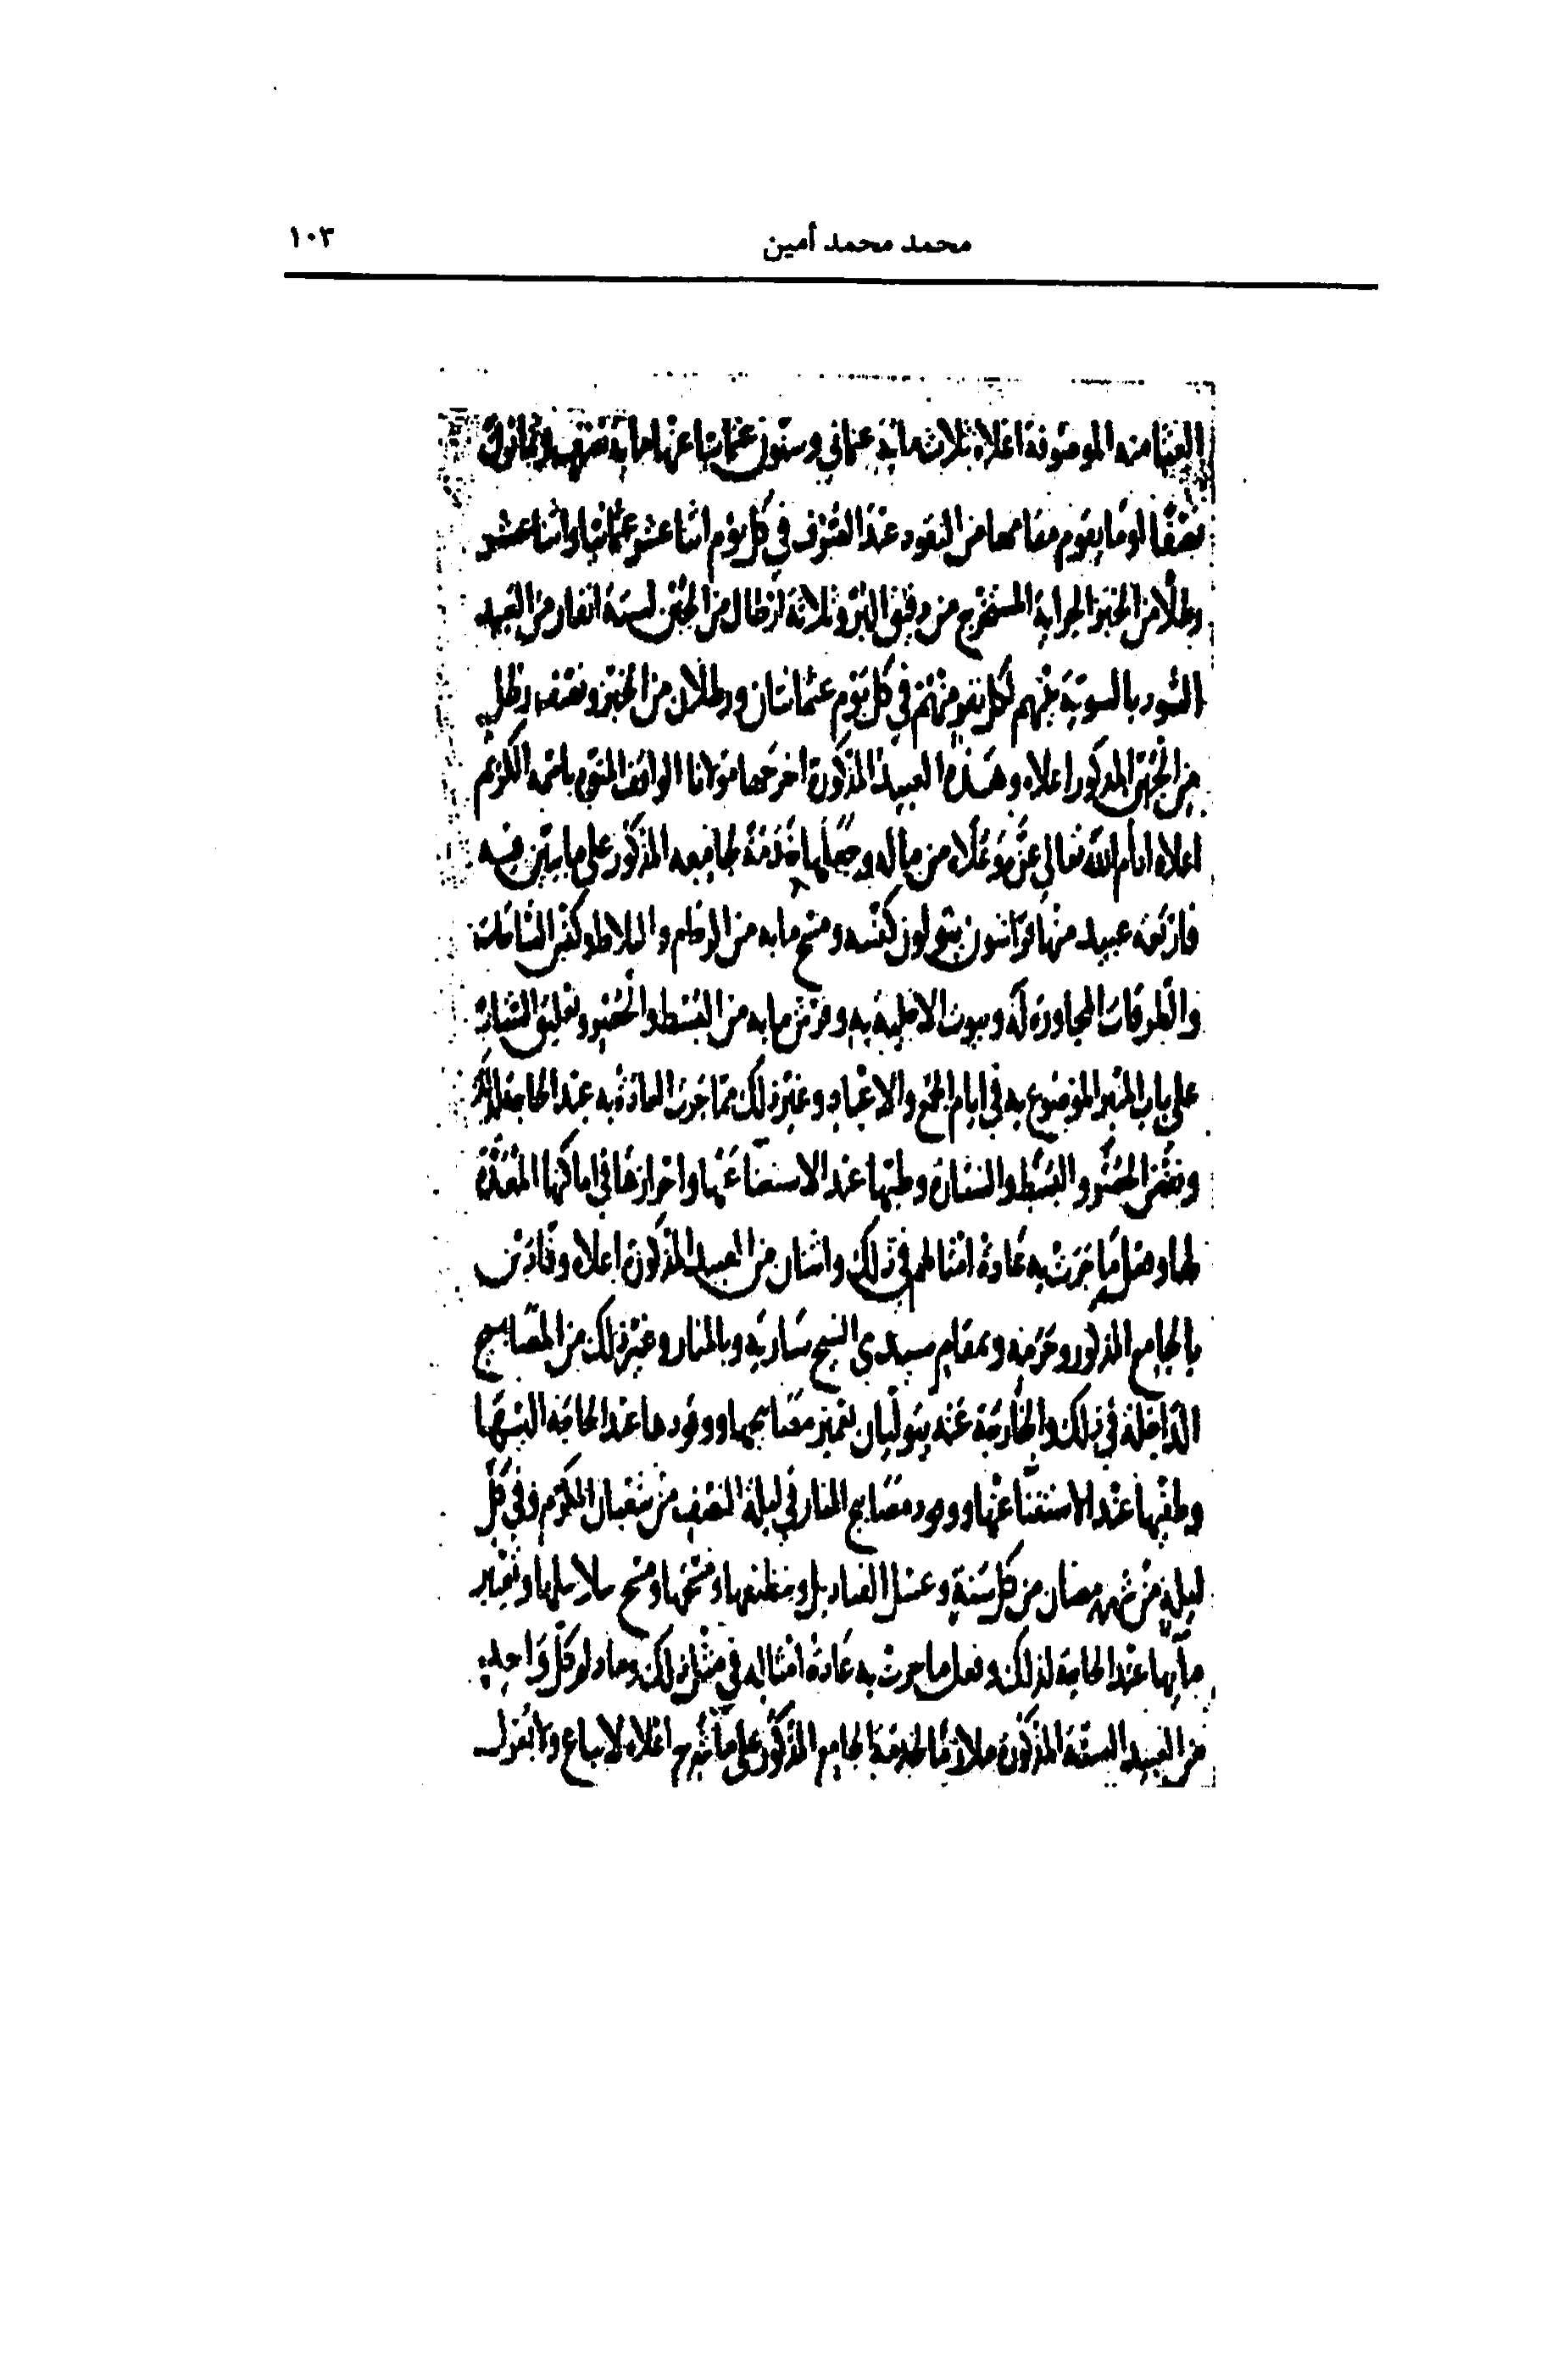 محمد محمد أمين
١٠٣
العثمامنه الموصوفة اعلاه ثلاث ماية عثماني وستون عثمانيا عنها ماية نصف وثمانون
نصفا او ما يقوم مقامها من النقود عند الصرف في كل يوم اثنا عشر عثمانيا واثنا عشر
رطلا من الخبز الجراية المستخرج من دقيق البر وثلاثة ارطال من الجبن لستة انفار من العبيد
السود بالسوية بينهم لكل نفر منهم في كل يوم عثمانيان ورطلان من الخبز ونصف رطل
من الجبن المذكور اعلاه وهذه العبيد المذكورة اخرجها مولانا الواقف المنوه باسمه الكريم
اعلاه ادام الله تعالى عزه وعلاه من ماله وجعلها خدمة لجامعه المذكور على ما يبين فيه
فاربعه عبيد منها فراشون يتولون كنسه ومسح ما به من الرخام والبلاط وكنس الشاملات
والطرقات المجاورة له وبيوت الاخلية به وفرش ما به من البسط والحصر وتعليق الستارة
على باب المنبر الموضوع به في ايام الجمع والاعياد وغير ذلك مما جرت العادة به عند الحاجة لذلك
ونفض الحصر والبسط والستارة وطيها عند الاستغناء عنها واحرازها في اماكنها المعدة
لها وفعل ما جرت به عادة امثالهم في ذلك واثنان من العبيد المذكورة اعلاه وقادين
بالجامع المذكور وحرمه وبمقام سيدي الشيخ سارية وبالمنار وغير ذلك من المصابيح
الداخلة في ذلك والخارجة عنه يتوليان تعمير مصابيحها ووقودها عند الحاجة اليها
وطفيها عند الاستغنا عنها ووقود مصابيح المنار في ليلة النصف من شعبان المكرم وفي كل
ليلة من شهر رمضان من كل سنة وغسل القناديل وتنظيفها ومسحها ومسح سلاسلها وتغيير
مآيها عند الحاجة لذلك وفعل ما جرت به عادة امثاله في مثل ذلك وما دام كل واحد
من العبيد الستة المذكورة ملازما لخدمة الجامع المذكور على ما شرح اعلاه لا يباع ولا يعزل